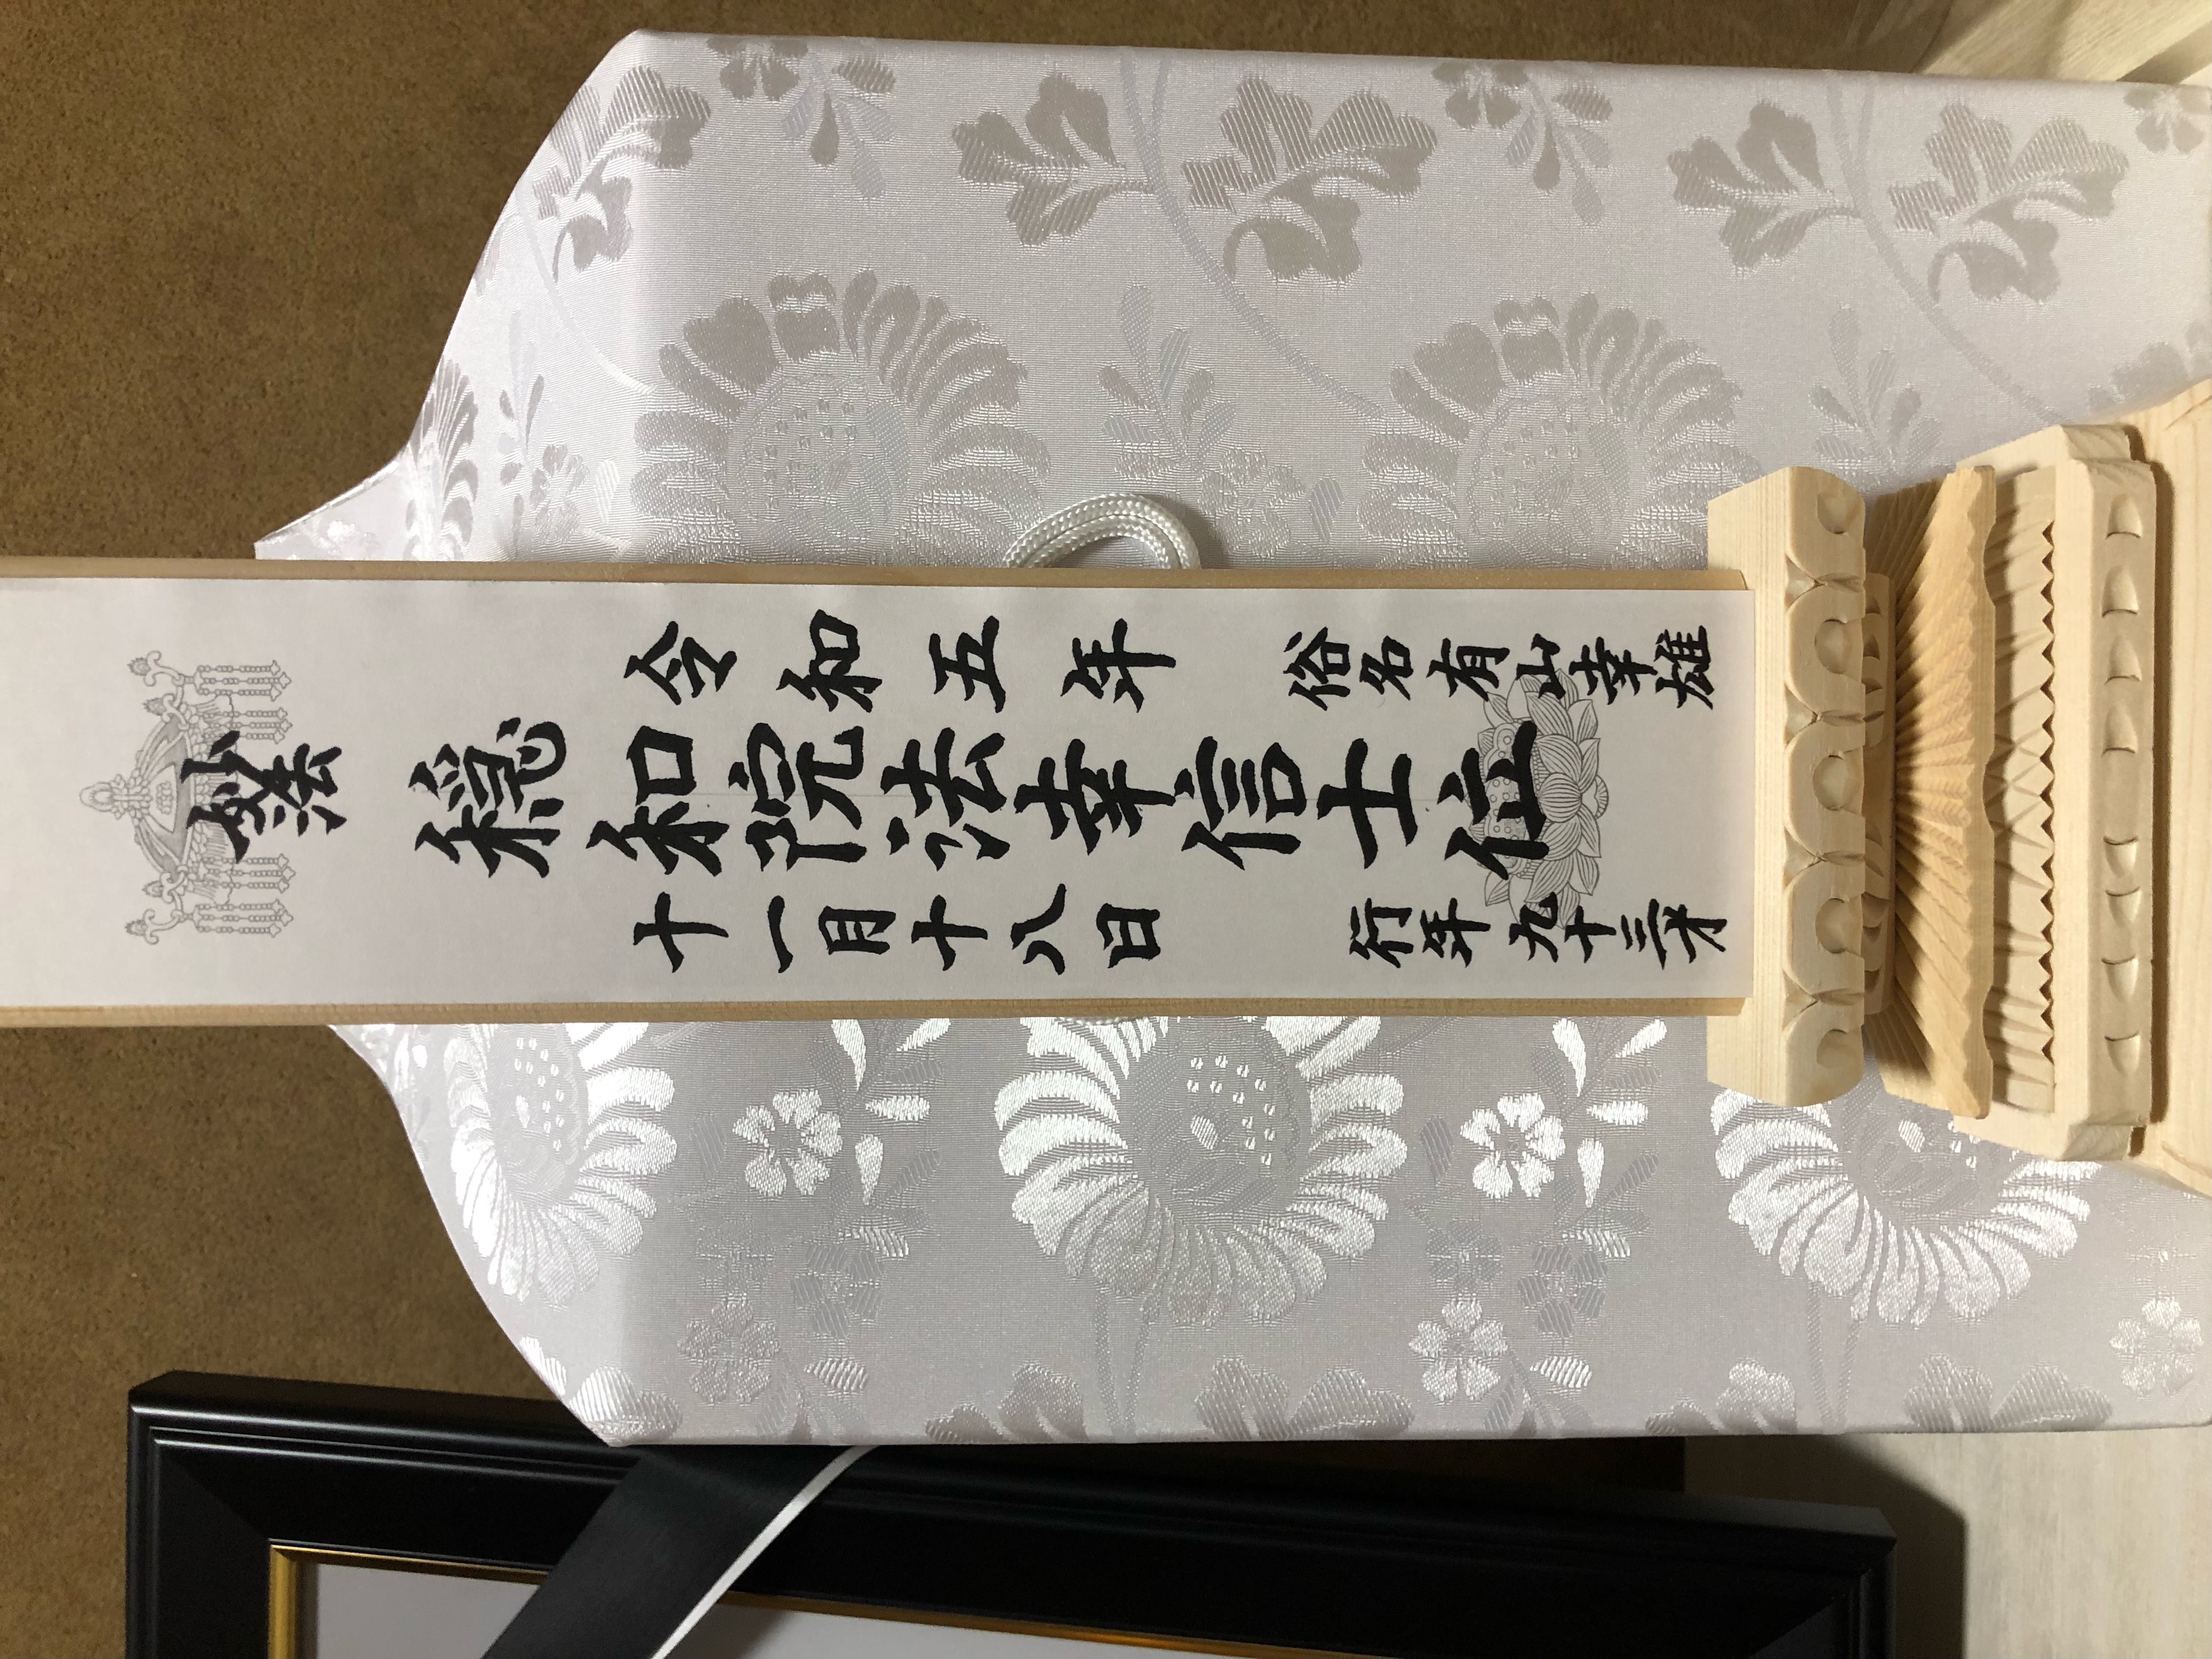 妙法
令和五年
俗名有山幸雄
穏和院法幸信士位
十一月十八日
行年九十三才